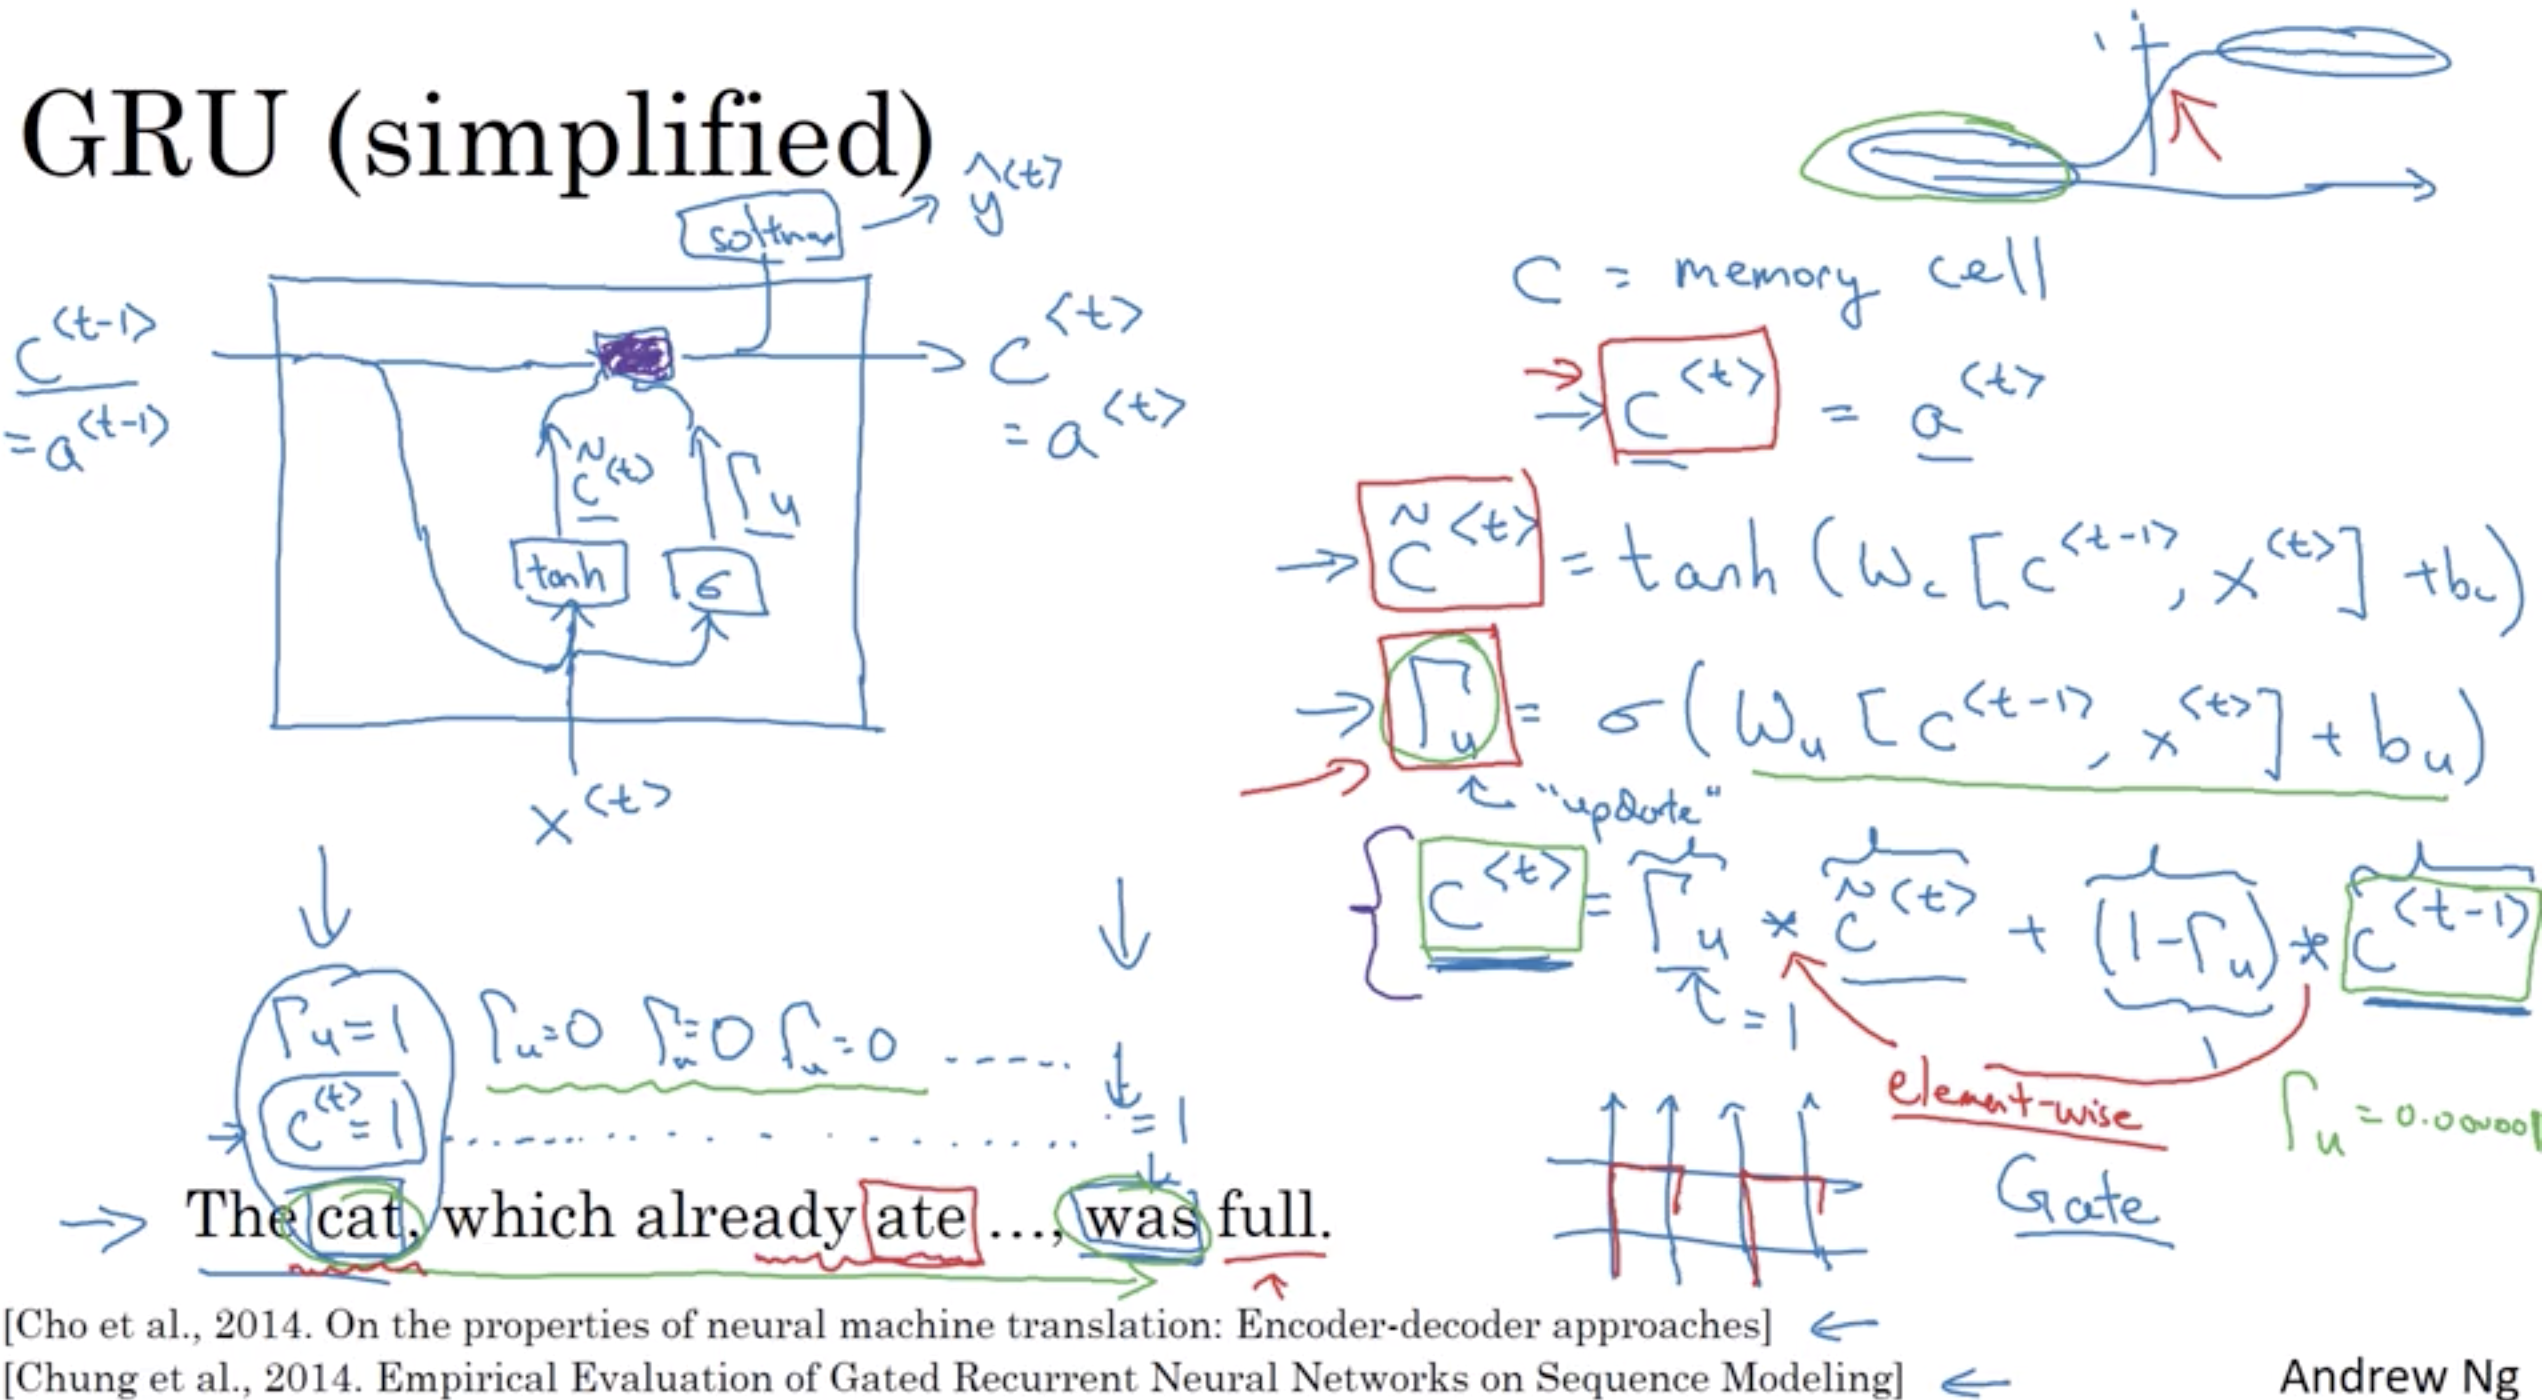 GRU (simplified)
softmax → ŷ<t>
c<t-1>
= a<t-1>
c<t>
= a<t>
c̃<t>
Γu
tanh
σ
x<t>
1
C = memory cell
c<t> = a<t>
c̃<t> = tanh (Wc [c<t-1>, x<t>] + bc)
Γu = σ (Wu [c<t-1>, x<t>] + bu)
"update"
c<t> = Γu * c̃<t> + (1-Γu) * c<t-1>
= 1
1
element-wise
Γu = 0.000001
Gate
Γu = 1 Γu = 0 Γu = 0 Γu = 0 -----
c<t> = 1 ........ = 1
The cat, which already ate ..., was full.
[Cho et al., 2014. On the properties of neural machine translation: Encoder-decoder approaches] ←
[Chung et al., 2014. Empirical Evaluation of Gated Recurrent Neural Networks on Sequence Modeling] ←
Andrew Ng